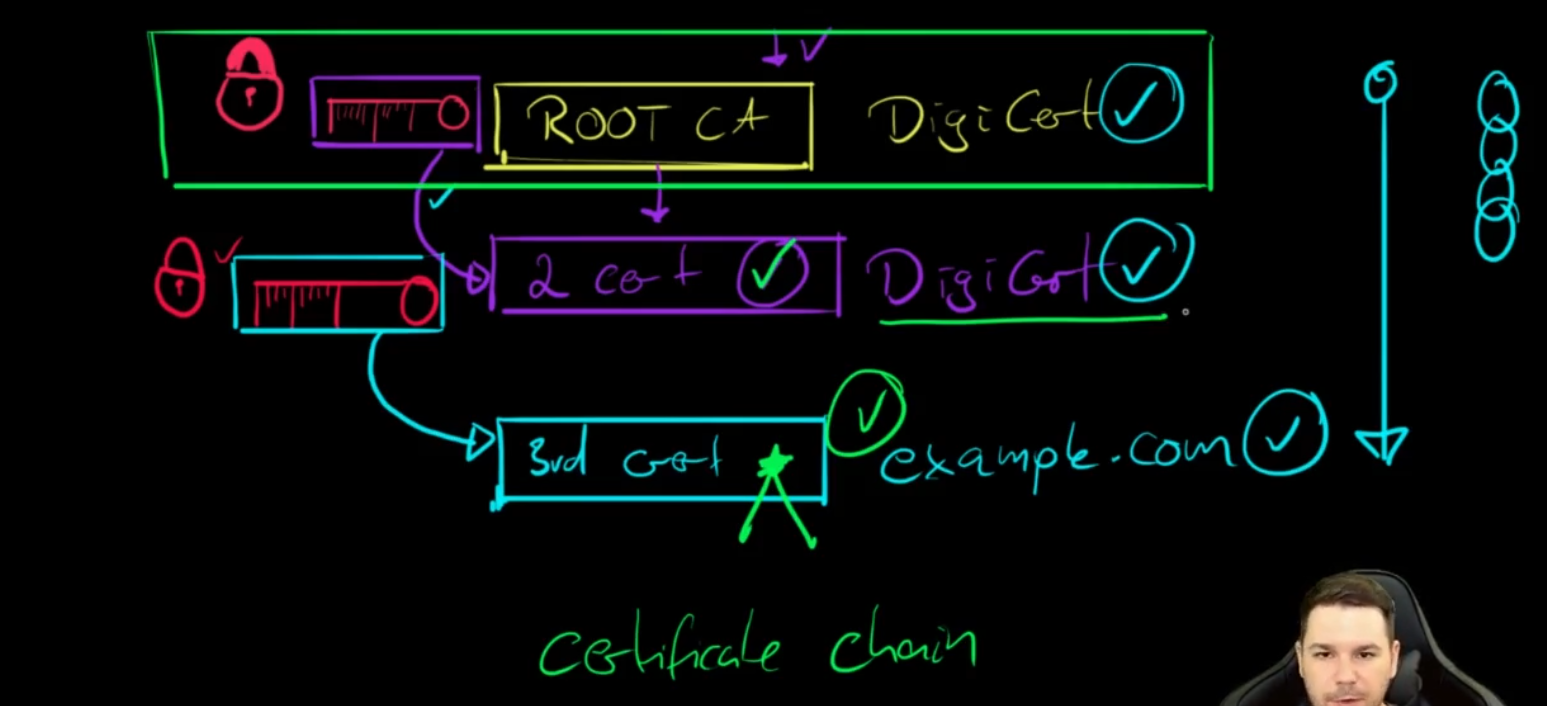 ROOT CA DigiCert
2 cert DigiCert
3rd cert example.com
certificate chain